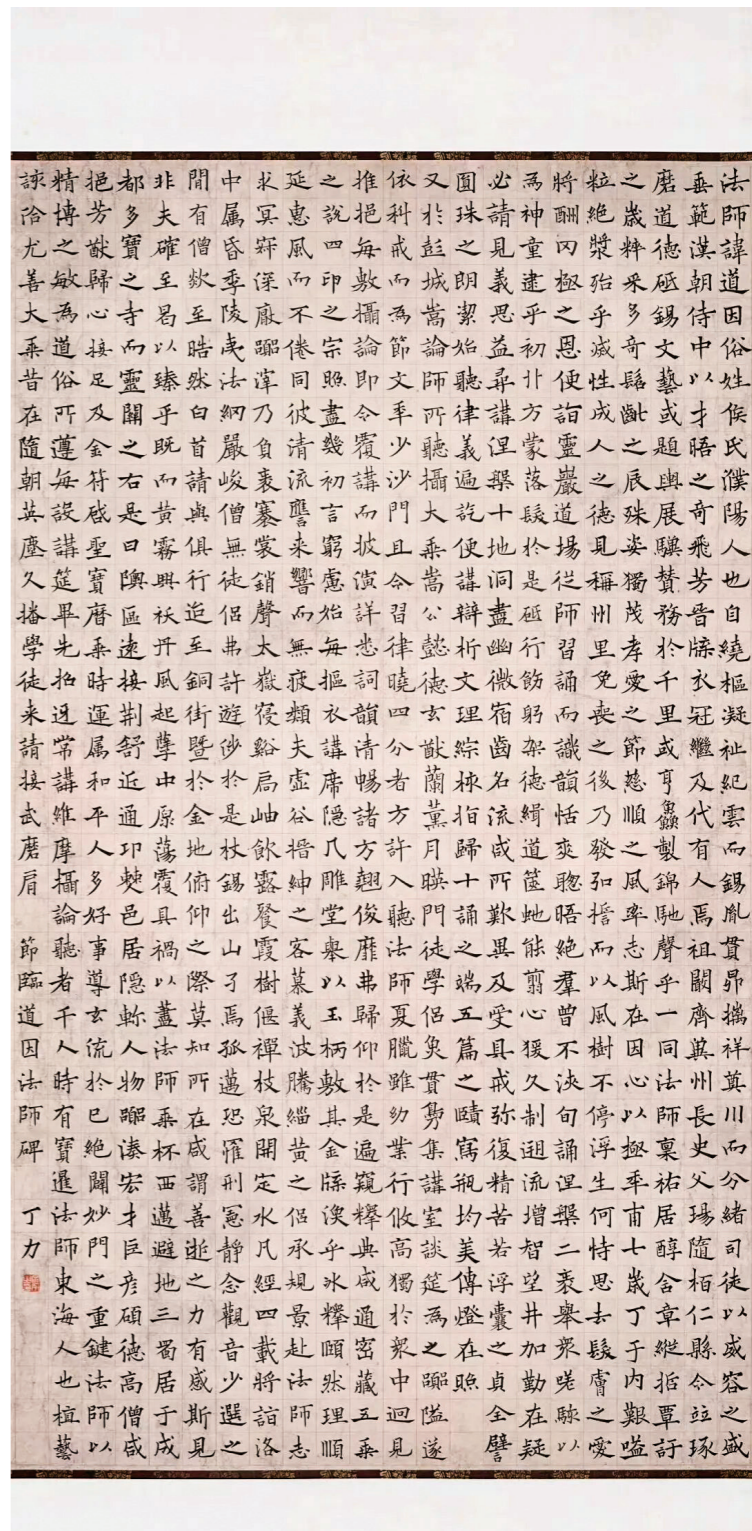 法師諱道因俗姓侯氏濮陽人也自繞樞凝祉紀雲而錫胤貫昴摛祥奠川而分緒司徒以威容之盛
垂範漢朝侍中以才晤之奇飛芳晉牒衣冠繼及代有人焉祖闕齊冀州長史父瑒隨栢仁縣令竝琢
磨道德砥錫文藝或題輿展驥贊務於千里或亨鱻製錦馳聲乎一同法師稟祐居醇含章縱哲覃訏
之歲粹采多奇髫齔之辰殊姿獨茂孝愛之節慈順之風率志斯在因心以極年甫七歲丁于内艱嗌
粒絕漿殆乎滅性成人之德見稱州里免喪之後乃發弘擔而以風樹不停浮生何恃思去髮膚之愛
將酬罔極之恩便詣靈巖道場從師習誦而識韻恬爽聰晤絕羣曾不浹旬誦涅槃二袠舉衆嗟駭以
為神童逮乎初丱方蒙落髮於是砥行飭躬架德緝道篋虵能翦心猨久制迴流增智望井加勤在疑
必請見義思益尋講涅槃十地洞盡幽微宿齒名流咸所歎異及受具戒弥復精苦若浮囊之貞全譬
圓珠之朗潔始聽律義遍訖便講辯析文理綜核指歸十誦之端五篇之賾寫瓶均美傳燈在照
又於彭城嵩論師所聽攝大乘嵩公懿德玄猷蘭薰月暎門徒學侶奐貫鳧集講室談筵為之嚻隘遂
依科戒而為節文年少沙門且令習律曉四分者方許入聽法師夏臘雖幼業行攸高獨於衆中迥見
推挹每敷攝論即令覆講而披演詳悉詞韻清暢諸方翹俊靡弗歸仰於是遍窺釋典咸通密藏五乘
之說四印之宗照盡幾初言窮慮始每摳衣講席隱几雕堂舉以玉柄敷其金牒渙乎冰釋頤然理順
延惠風而不倦同彼清流讋來響而無疲類夫虛谷搢紳之客慕義波騰緇黃之侶承規景赴法師志
求冥寂深厭嚻滓乃負袠褰裳銷聲太嶽寝谿扃岫飲露飡霞樹偃禪枝泉開定水凡經四載將詣洛
中属昏季陵虔法網嚴峻僧無徒侶弗許遊涉於是杖錫出山了焉孤邁恐罹刑憲靜念觀音少選之
間有僧欻至晧然白首請與俱行迨至銅街暨於金地俯仰之際莫知所在咸謂善逝之力有感斯見
非夫確至曷以臻乎既而黃霧興祅丹風起孽中原蕩覆具禍以藎法師乘杯西邁避地三蜀居于成
都多寶之寺而靈關之右是曰隩區遠接荆舒近通卭僰邑居隱軫人物嚻湊宏才巨彦碩德高僧咸
挹芳猷歸心接足及金符啓聖寶曆乘時運属和平人多好事導玄流於已絕闢妙門之重鍵法師以
精博之敏為道俗所遵每設講筵畢先招迓常講維摩攝論聽者千人時有寶暹法師東海人也植藝
該洽尤善大乘昔在隨朝英塵久播學徒來請接武磨肩 節臨道因法師碑 丁力